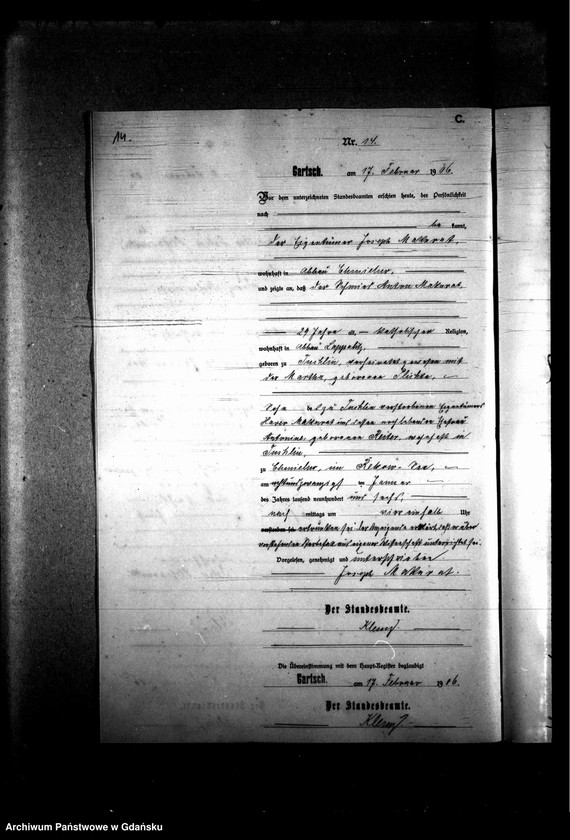 C.
14.
Nr. 14.
Gartsch. am 17. Februar 1906.
Vor dem unterzeichneten Standesbeamten erschien heute, der Persönlichkeit
nach
be kannt,
der Eigentümer Joseph Makurat,
wohnhaft in Abbau Chmielno,
und zeigte an, daß der Schmied Anton Makurat,
29 Jahre a, katholischer Religion,
wohnhaft in Abbau
geboren zu Tuchlin, verheiratet gewesen mit
der Martha, geborenen
Sohn des zu Tuchlin verstorbenen Eigentümers
Makurat und dessen noch lebenden Ehefrau
geborenen wohnhaft in
Tuchlin,
zu Chmielno, im
am achtundzwanzigsten Januar
des Jahres tausend neunhundert und sechs,
nach mittags um vier einhalb Uhr
verstorben sei ertrunken sei der Anzeigende erklärt, daß er über
vorstehenden Sterbefall aus eigener Wissenschaft unterrichtet sei.
Vorgelesen, genehmigt und unterschrieben
Joseph Makurat.
Der Standesbeamte.
Die Übereinstimmung mit dem Haupt-Register beglaubigt
Gartsch. am 17. Februar 1906.
Der Standesbeamte.
Archiwum Państwowe w Gdańsku